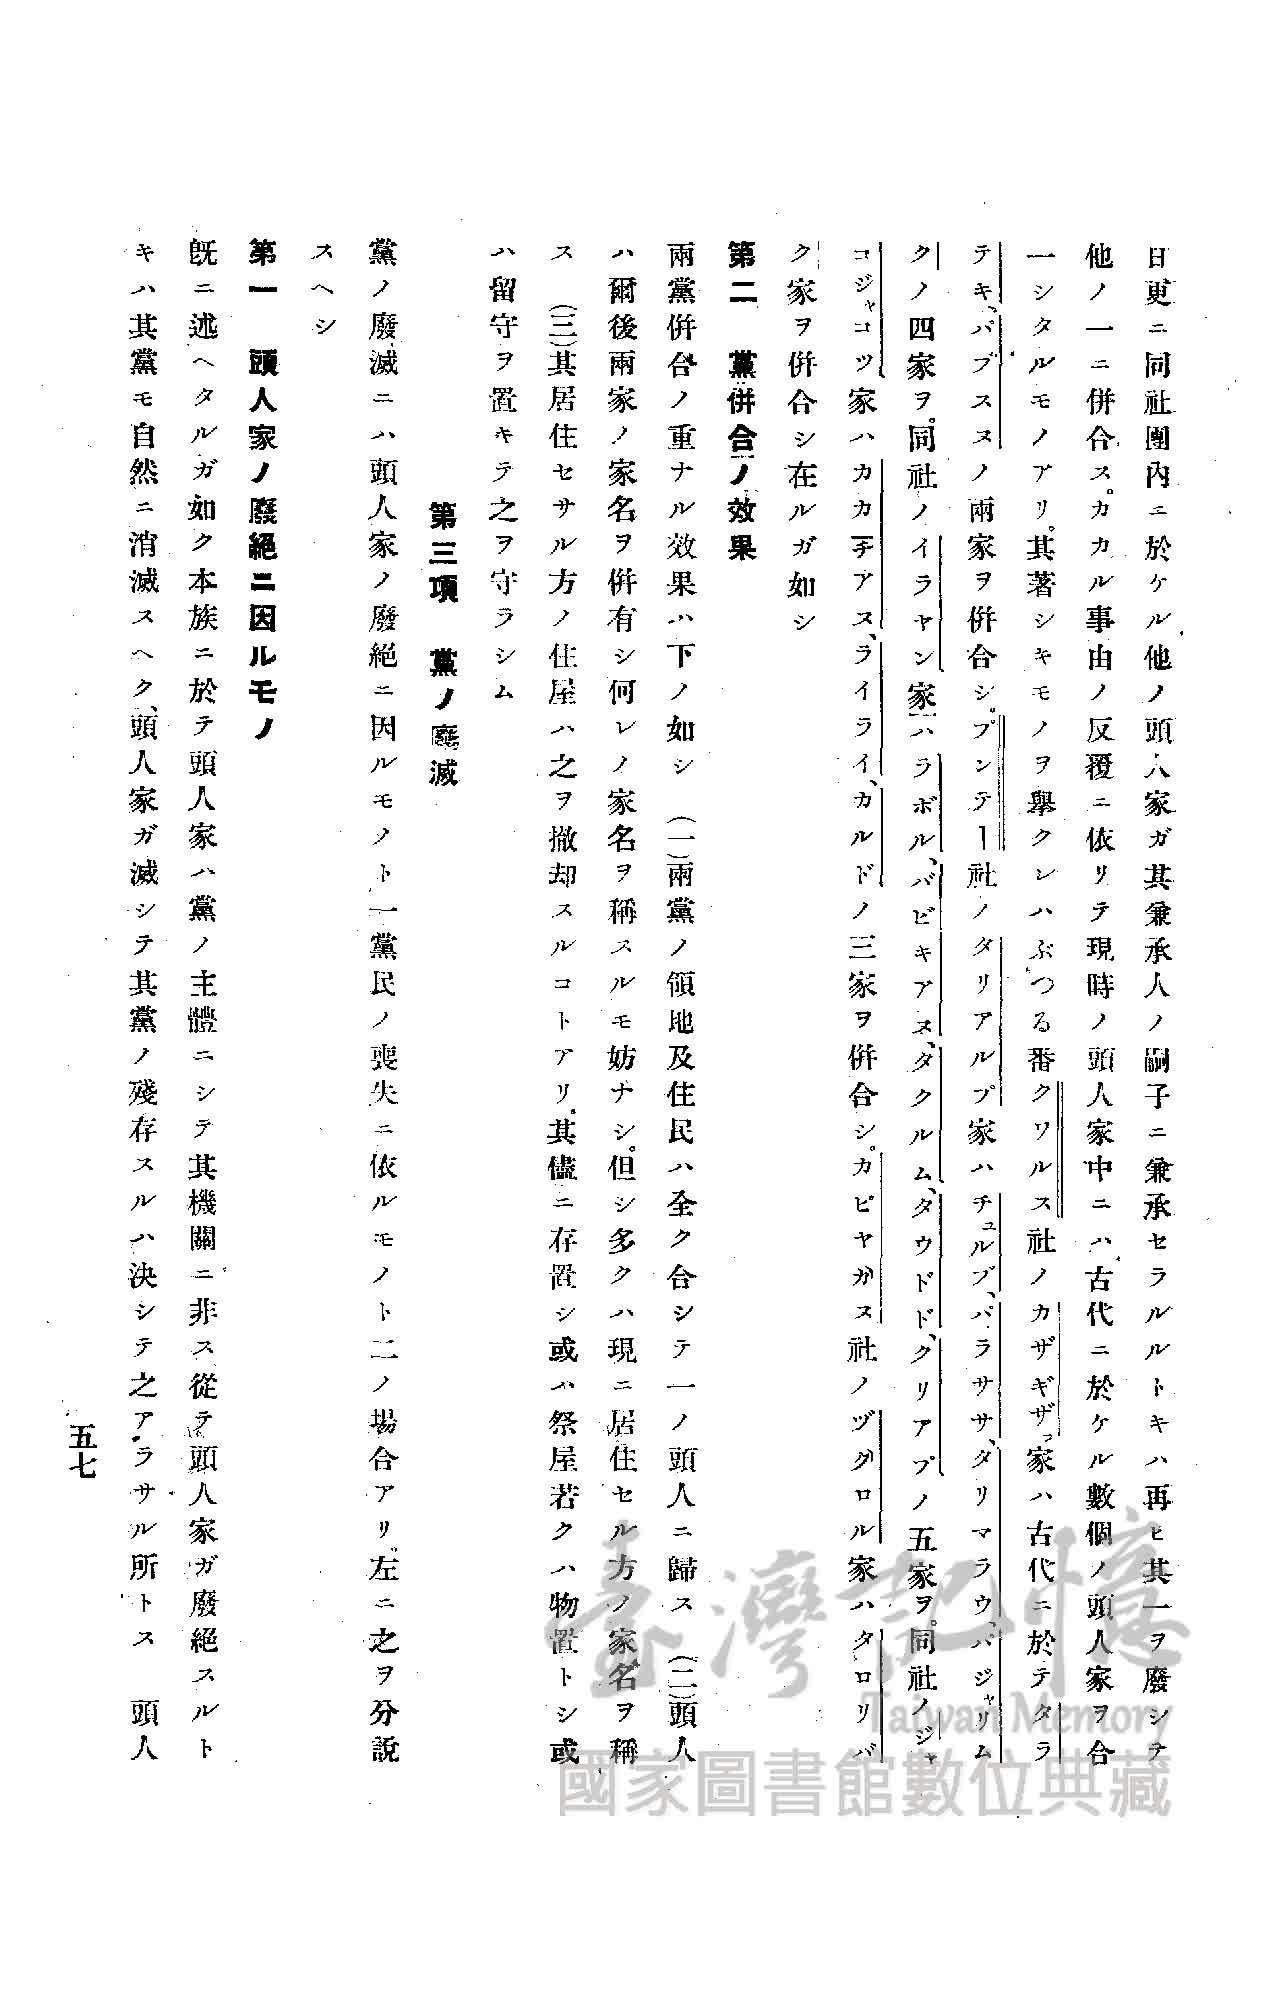 日更ニ同社團內ニ於ケル他ノ頭人家ガ其兼承人ノ嗣子ニ兼承セラルルトキハ再ヒ其一ヲ廢シテ
他ノ一ニ併合ス。カカル事由ノ反覆ニ依リテ現時ノ頭人家中ニハ古代ニ於ケル數個ノ頭人家ヲ合
一シタルモノアリ。其著シキモノヲ擧クレハぶつる番クワルス社ノカザギザ家ハ古代ニ於テタラ
テキ、バブススノ兩家ヲ併合シ。プンテー社ノタリアルプ家ハチュルブ、バラササ、タリマラウ、バジャリム
クノ四家ヲ。同社ノイラヤン家ハラボル、バビキアヌ、タクルム、タウドド、クリアプノ五家ヲ。同社ノジャ
コジャコツ家ハカカチアス、ライライ、カルドノ三家ヲ併合シ。カピヤガヌ社ノヅグロル家ハタロリバ
ク家ヲ併合シ在ルガ如シ
第二 黨併合ノ效果
兩黨併合ノ重ナル效果ハ下ノ如シ (一)兩黨ノ領地及住民ハ全ク合シテ一ノ頭人ニ歸ス (二)頭人
ハ爾後兩家ノ家名ヲ併有シ何レノ家名ヲ稱スルモ妨ナシ。但シ多クハ現ニ居住セル方ノ家名ヲ稱
ス (三)其居住セサル方ノ住屋ハ之ヲ撤却スルコトアリ。其儘ニ存置シ或ハ祭屋若クハ物置トシ或
ハ留守ヲ置キテ之ヲ守ラシム
第三項 黨ノ廢滅
黨ノ廢滅ニハ頭人家ノ廢絕ニ因ルモノト一黨民ノ喪失ニ依ルモノト二ノ場合アリ。左ニ之ヲ分說
スヘシ
第一 頭人家ノ廢絕ニ因ルモノ
旣ニ述ヘタルガ如ク本族ニ於テ頭人家ハ黨ノ主體ニシテ其機關ニ非ス從テ頭人家ガ廢絕スルト
キハ其黨モ自然ニ消滅スヘク、頭人家ガ滅シテ其黨ノ殘存スルハ決シテ之アラサル所トス 頭人
五七
臺灣記憶
Taiwan Memory
國家圖書館數位典藏